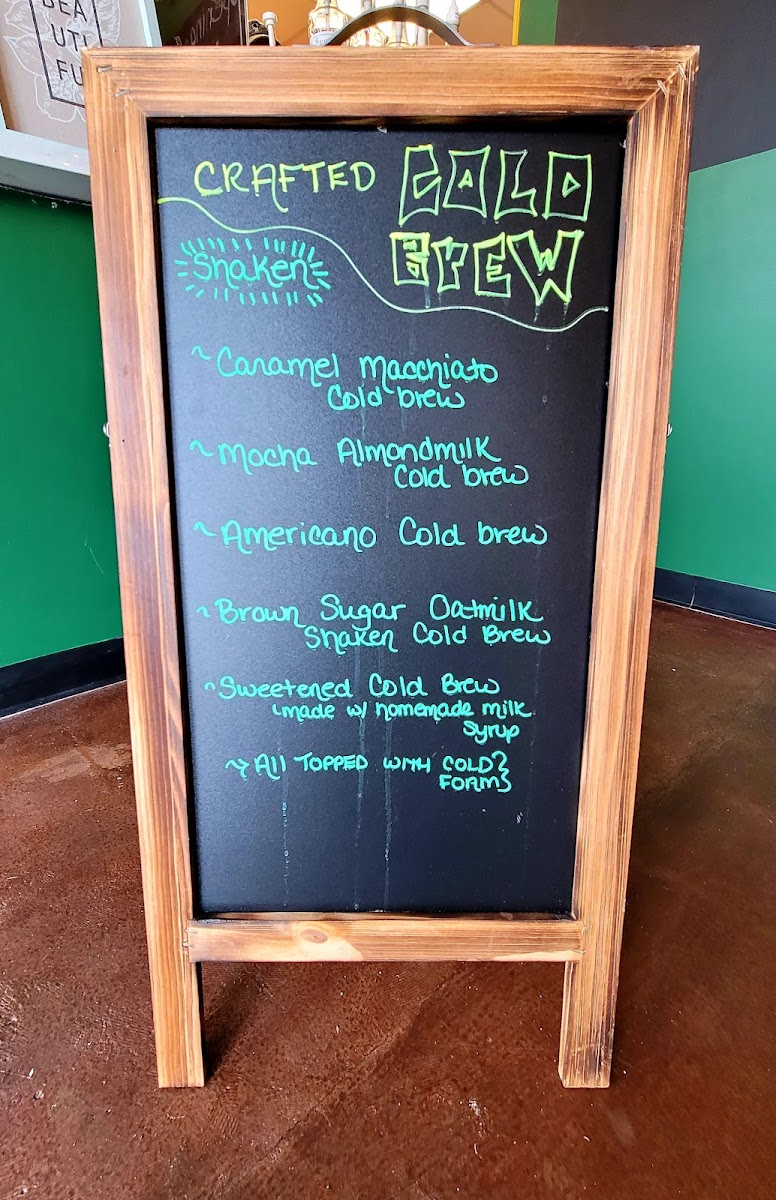 BEA
UTI
FU
CRAFTED COLD
BREW
Shaken
~Caramel Macchiato
Cold brew
~Mocha Almondmilk
Cold brew
~Americano Cold brew
~Brown Sugar Oatmilk
Shaken Cold Brew
~Sweetened Cold Brew
made w/ homemade milk
syrup
All TOPPED WITH COLD
FORM